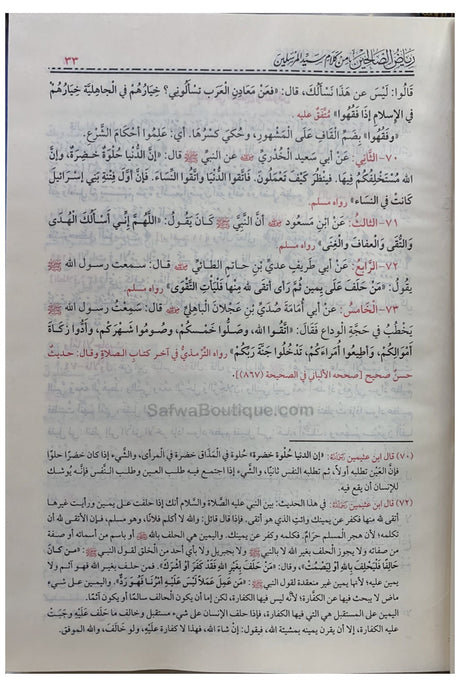 رياض الصالحين من كلام سيد المرسلين
٣٣
قَالُوا: لَيْسَ عن هَذَا نَسْأَلُكَ، قال: «فعَنْ مَعَادِنِ العَرَبِ تسْأَلُونِي؟ خِيَارُهُمْ في الجاهِليَّةِ خِيَارُهُمْ
في الإسلامِ إذَا فَقُهُوا» متَّفقٌ عليه.
«وفَقُهُوا» بِضَمِّ القَافِ عَلَى الْمَشهورِ، وحُكيَ كَسْرُهَا. أي: عَلِمُوا أحْكَامَ الشَّرْعِ.
٧٠- الثَّاني: عَنْ أبي سَعيد الخُدْرِيِّ ﷺ عن النبيِّ ﷺ قال: «إنَّ الدُّنيا حُلْوَةٌ خضِرَةٌ، وإنَّ
الله مُسْتَخْلِفُكُمْ فِيهَا. فينْظُر كَيْفَ تَعْمَلُونَ. فَاتَّقوا الدُّنْيَا واتَّقُوا النِّسَاءَ. فإِنَّ أوَّلَ فِتْنَةِ بَنِي إسْرَائيلَ
كَانَتْ في النسَاء» رواه مسلم.
٧١- الثالثُ: عَنْ ابْنِ مَسْعودٍ أنَّ النَّبيَّ ﷺ كَانَ يَقُولُ: «اللَّهُمَّ إنِّي أَسْأَلُكَ الْهُدَى
وَالتُّقَى وَالْعفافَ والْغِنَى» رواه مسلم.
٧٢- الرَّابعُ: عَنْ أبي طَريفٍ عديِّ بْنِ حاتمٍ الطائيِّ قال: سمعتُ رسول الله ﷺ
يقُولُ: «مَنْ حَلَفَ عَلَى يمين ثُمَّ رَأى أتقى لله مِنْها فَلْيَأْتِ التَّقْوَى» رواه مسلم.
٧٣- الْخَامسُ: عنْ أبي أُمَامَةَ صُدَيِّ بْنِ عَجْلانَ الْباهِليِّ قال: سَمِعْتُ رسول الله ﷺ
يَخْطُبُ في حَجَّةِ الْودَاع فَقَالَ: «اتَّقُوا الله، وصَلُّوا خَمْسَكُمْ، وصُومُوا شَهْرَكمْ، وأَدُّوا زكَاةَ
أَمْوَالِكُمْ، وَأَطِيعُوا أُمَرَاءَكُمْ، تَدْخُلُوا جَنَّةَ رَبِّكُمْ» رواه التِّرْمذيُّ في آخر كتابِ الصلاةِ وقال: حديثٌ
حسنٌ صحيح [صححه الألباني في الصحيحة (٨٦٧)].
SafwaBoutique.com
(٧٠) قال ابن عثيمين: «إن الدنيا حُلوة خضرة» حُلوة في الْمَذَاق خضرة في المرأى، والشيء إذا كان خضرًا حلوًا
فإنَّ العَيْن تطلبه أولاً، ثم تطلبه النفس ثانيًا، والشيء إذا اجتمع فيه طلب العين وطلب النفس فإنه يوشك
للإنسان أن يقع فيه.
(٧٢) قال ابن عثيمين: في هذا الحديث: بين النبي عليه الصَّلاة والسَّلام أنك إذا حلفت على يمين ورأيت غيرها
أتقى لله منها فكفر عن يمينك وائتِ الذي هو أتقى. فإذا قال قائل: والله لا أكلم فلانًا، وهو مسلم، فإن الأتقى لله أن
تكلمه؛ لأن هجر المسلم حرَامٌ. فكلمه وكفر عن يمينك. واليمين هي الحلف بالله ﷻ أو باسم من أسمائه أو صفة
من صفاته ولا يجوز الحلف بغير الله لا بالنبي ﷺ ولا بجبريل ولا بأي أحد من الخلق لقول النبي ﷺ: «من كانَ
حَالِفًا فَلْيَحْلِفْ بِاللهِ أَوْ لِيَصْمُتْ»، وقال: «مَنْ حَلَفَ بِغَيْرِ اللَّهِ فَقَدْ كَفَرَ أَوْ أَشْرَكَ». فمن حلف بغير الله فهو آثم ولا
يمين عليه؛ لأنها يمين غير منعقدة لقول النبي ﷺ: «مَنْ عَمِلَ عَمَلاً لَيْسَ عَلَيْهِ أَمْرُنَا فَهُوَ رَدٌّ». واليمين على شيء
ماض لا يبحث فيها عن الكفَّارة؛ لأنه ليس فيها كفارة، لكن إما أن يكون الحالف سالمًا أو يكون آثمًا.
اليمين على المستقبل هي التي فيها الكفارة، فإذا حلف الإنسان على شيء مستقبل وخالف مَا حَلَفَ عَلَيْهِ وجَبَتْ
عليه الكفارة، إلا أن يقرن يمينه بمشيئة الله، فيقول: إنْ شاءَ الله، فهذا لا كفارة عَلَيْهِ، ولو خَالَفَ، والله الموفق.